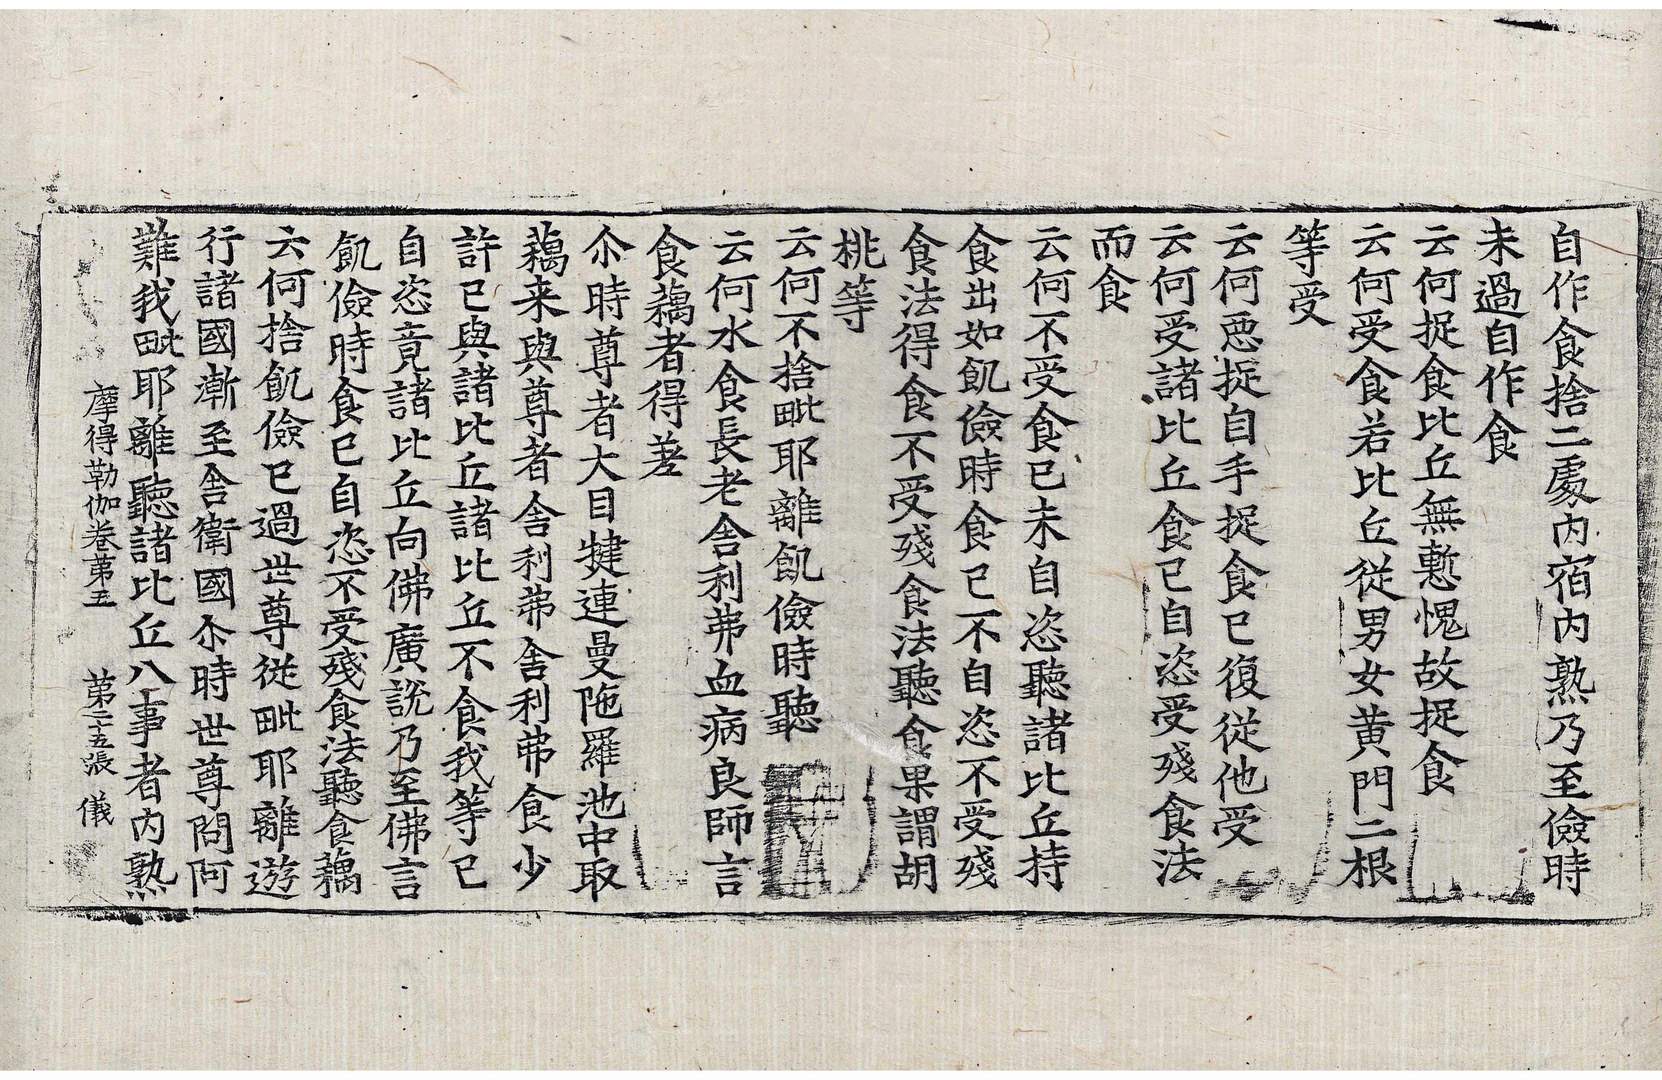 自作食捨二處内宿内熟乃至儉時
未過自作食
云何捉食比丘無慙愧故捉食
云何受食若比丘從男女黄門二根
等受
云何惡捉自手捉食已復從他受
云何受諸比丘食已自恣受殘食法
而食
云何不受食已未自恣聽諸比丘持
食出如飢儉時食已不自恣不受殘
食法得食不受殘食法聽食果謂胡
桃等
云何不捨毗耶離飢儉時聽
云何水食長老舍利弗血病良師言
食藕者得差
尒時尊者大目揵連曼陁羅池中取
藕来與尊者舍利弗舍利弗食少
許已與諸比丘諸比丘不食我等已
自恣竟諸比丘向佛廣說乃至佛言
飢儉時食已自恣不受殘食法聽食藕
云何捨飢儉已過世尊從毗耶離遊
行諸國漸至舍衛國尒時世尊問阿
難我毗耶離聽諸比丘八事者内熟
摩得勒伽卷第五 第二十五張 儀